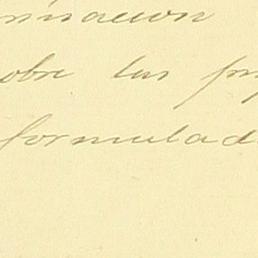 misacion
sobre las pr
formulad